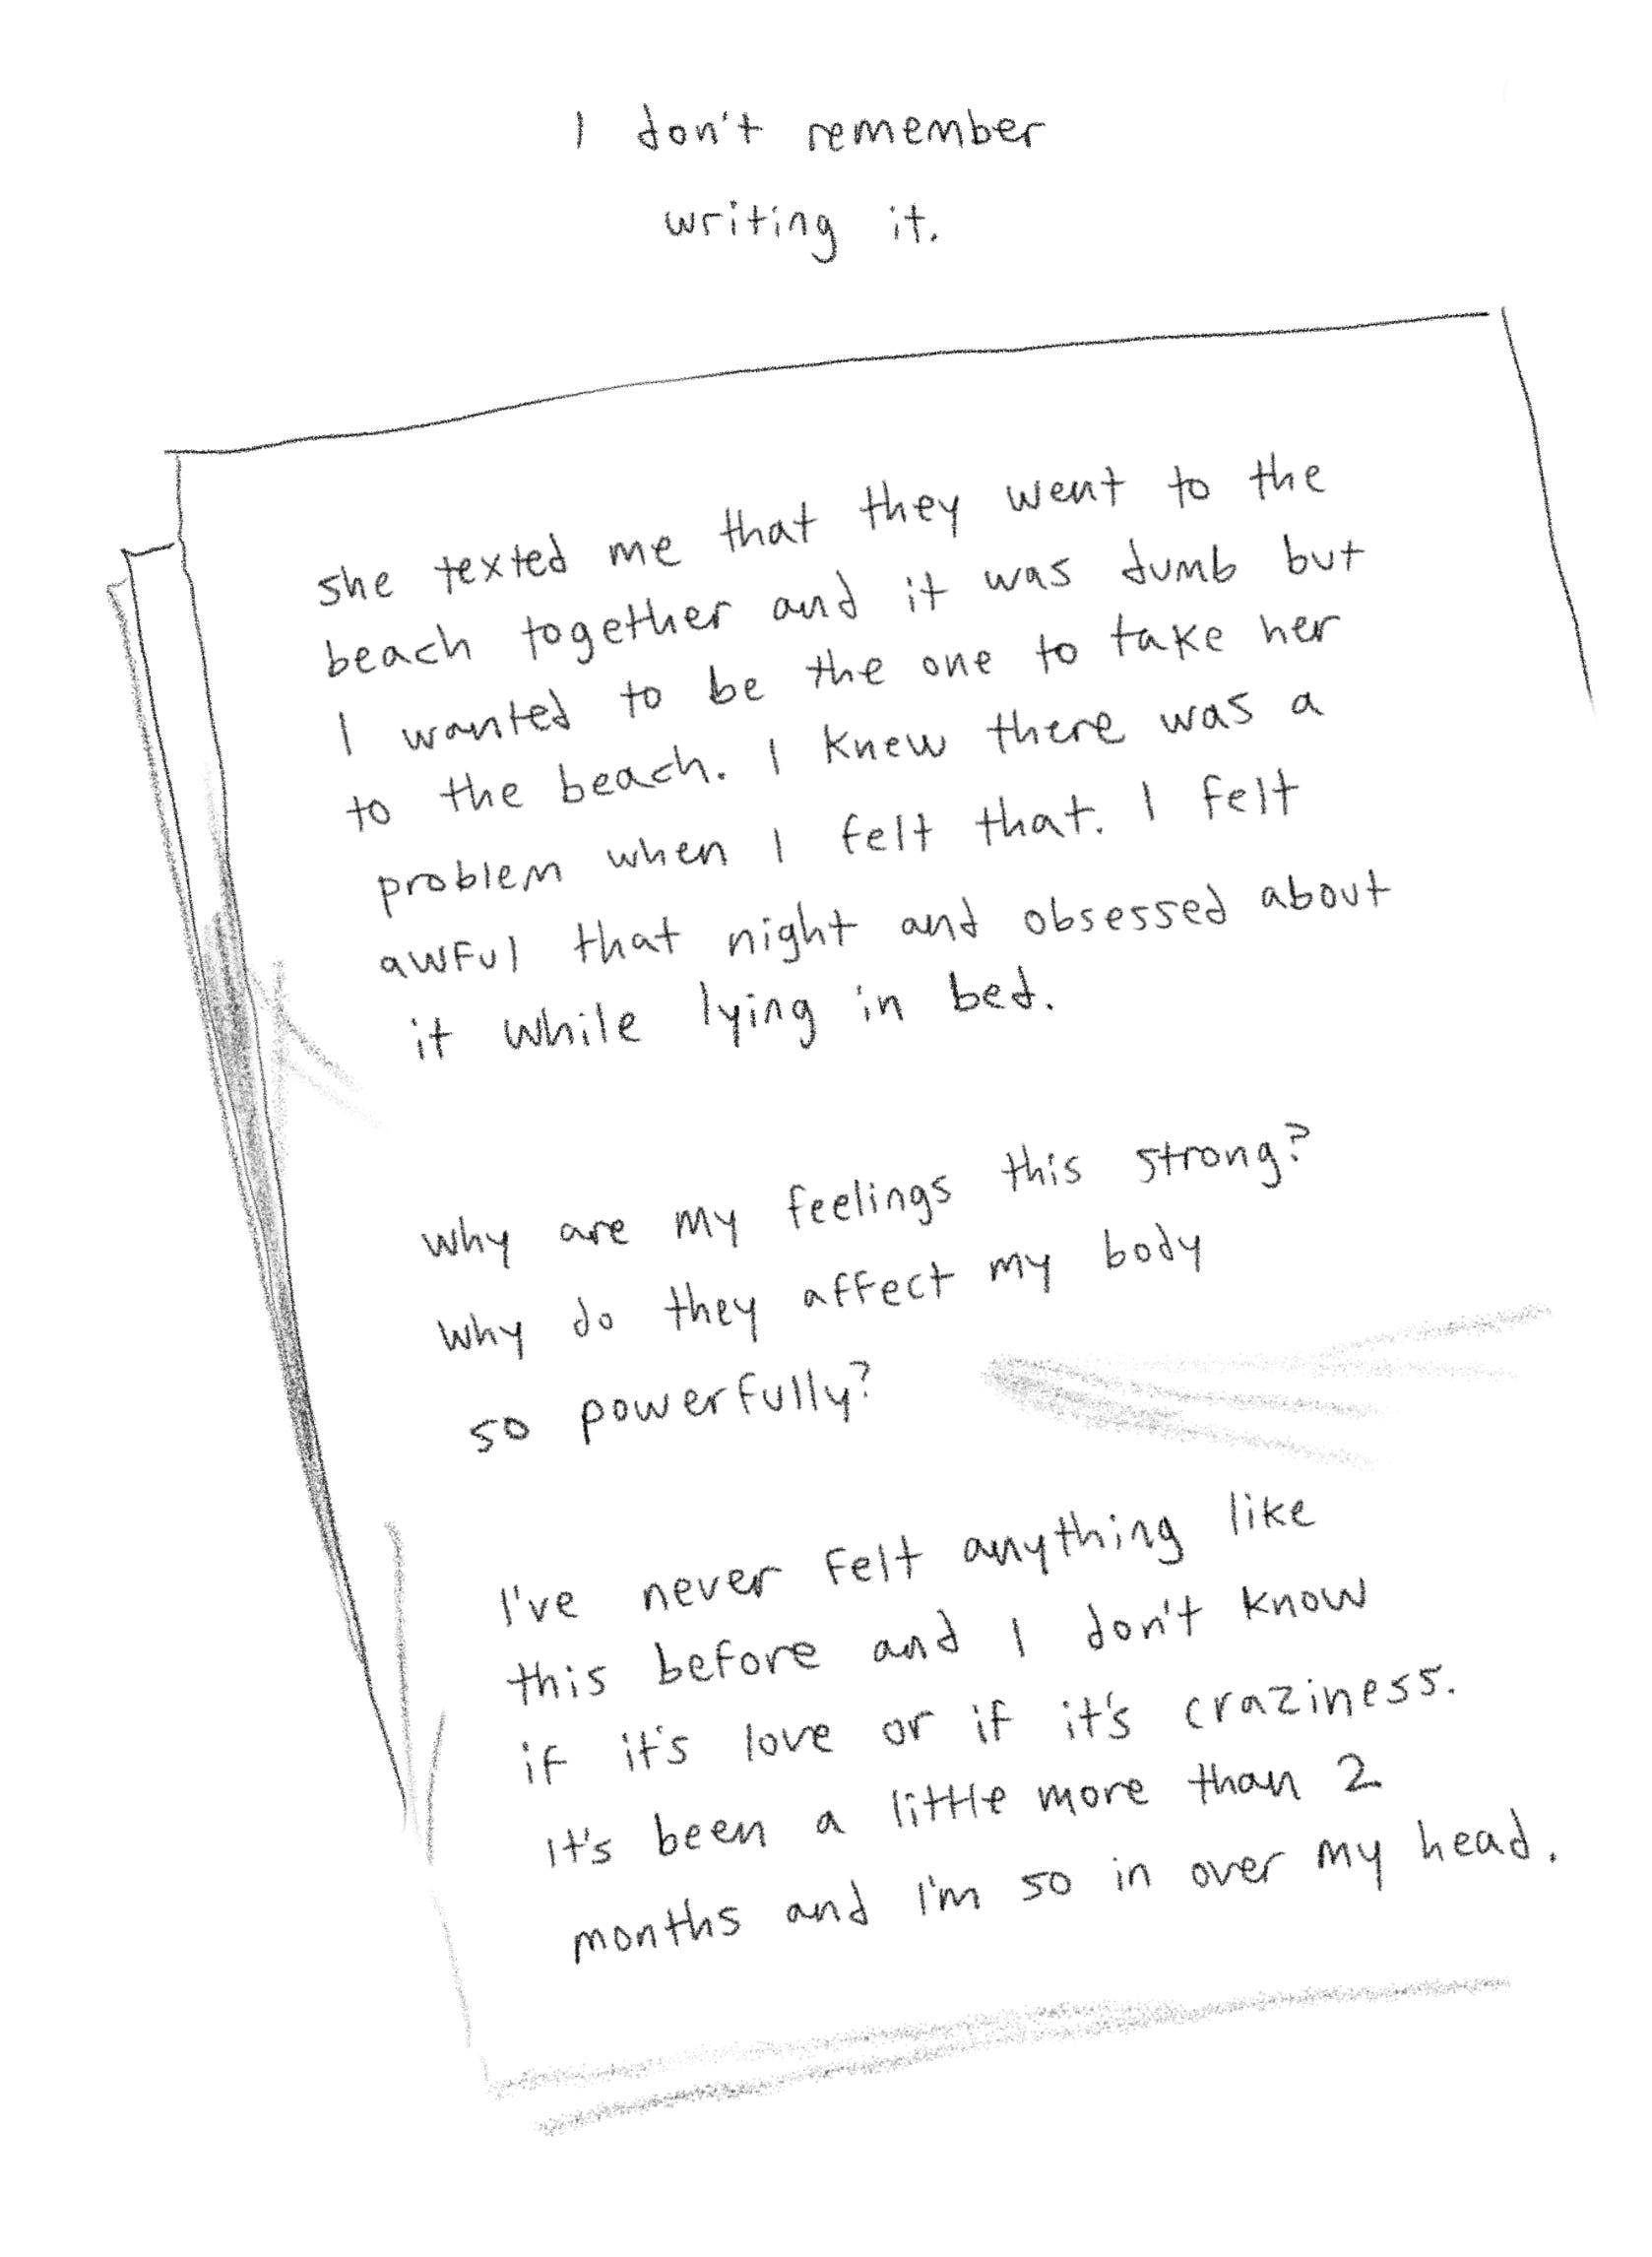 I don't remember
writing it.
she texted me that they went to the
beach together and it was dumb but
I wanted to be the one to take her
to the beach. I knew there was a
problem when I felt that. I felt
awful that night and obsessed about
it while lying in bed.
why are my feelings this strong?
why do they affect my body
so powerfully?
I've never felt anything like
this before and I don't know
if it's love or if it's craziness.
It's been a little more than 2
months and I'm so in over my head.